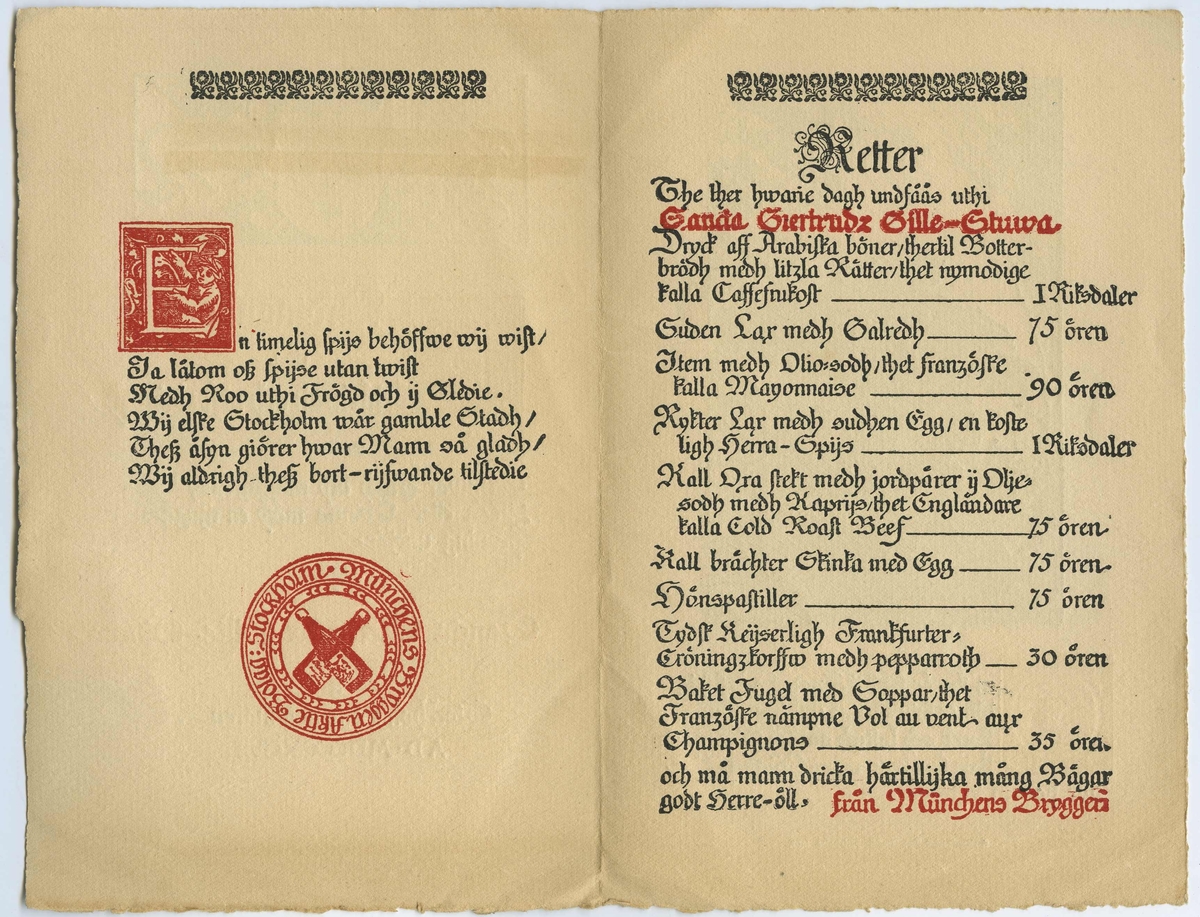 En timelig spijs behöffwe wij wist/
Ja låtom oß spijse utan twist
Medh Roo uthi Frögd och ij Glédie.
Wij elske Stockholm wår gamble Stadh/
Theß åsyn giörer hwar Mann så gladh/
Wij aldrigh theß bort-rijfwande tilstedie
Stockholm · Münchens Bryggeri Aktie Bolag:
Retter
The ther hwarie dagh undfåås uthi
Sancta Giertrudz Gille-Stuwa.
Dryck aff Arabiska böner/thertil Botter-
brödh medh litzla Rätter/thet nymodige
kalla Caffefrukost 1 Riksdaler
Suden Lax medh Salredh 75 ören
Item medh Olio=sodh/thet französke
kalla Mayonnaise 90 ören
Rykter Lax medh sudhen Egg/en koste
ligh Herra-Spijs 1 Riksdaler
Kall Oxa stekt medh jordpärer ij Olje=
sodh medh Kaprijs/thet Engländare
kalla Cold Roast Beef 75 ören
Kall bråchter Skinka med Egg 75 ören
Hönspastiller 75 ören
Tydsk Keijserligh Frankfurter=
Cröningzkorffw medh pepparroth 30 ören
Baket Fugel med Soppar/thet
Französke nämpne Vol au vent aux
Champignons 35 ören
och må mann dricka härtillijka mång Bägar
godt Herre-öll. från Münchens Bryggeri